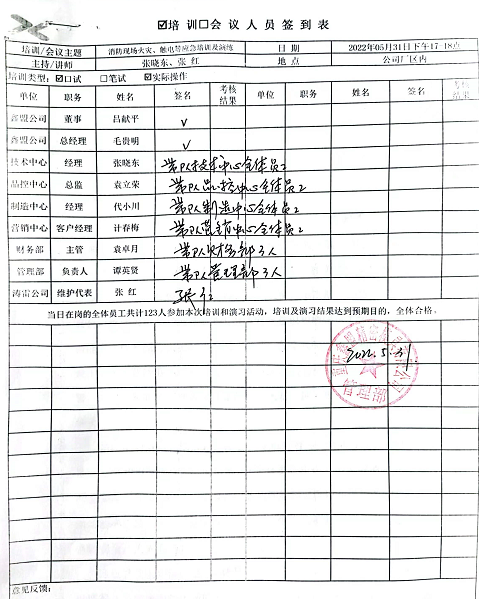 ☑培训☐会议人员签到表
培训/会议主题 消防现场火灾、触电等应急培训及演练 日期 2022年05月31日下午17-18点
主持/讲师 张晓东、张红 地点 公司厂区内
培训类型: ☑口试 ☐笔试 ☑实际操作
单位 职务 姓名 签名 考核结果 单位 职务 姓名 签名 考核结果
鑫盟公司 董事 吕献平 ✓
鑫盟公司 总经理 毛贵明 ✓
技术中心 经理 张晓东 带队技术中心全体员工
品控中心 总监 袁立荣 带队品控中心全体员工
制造中心 经理 代小川 带队制造中心全体员工
营销中心 客户经理 计春梅 带队营销中心全体员工
财务部 主管 袁卓月 带队财务部3人
管理部 负责人 谭英贤 带队管理部3人
涛雷公司 维护代表 张红 张红
当日在岗的全体员工共计123人参加本次培训和演习活动，培训及演习结果达到预期目的，全体合格。
2022.5.31
管理部
意见反馈: